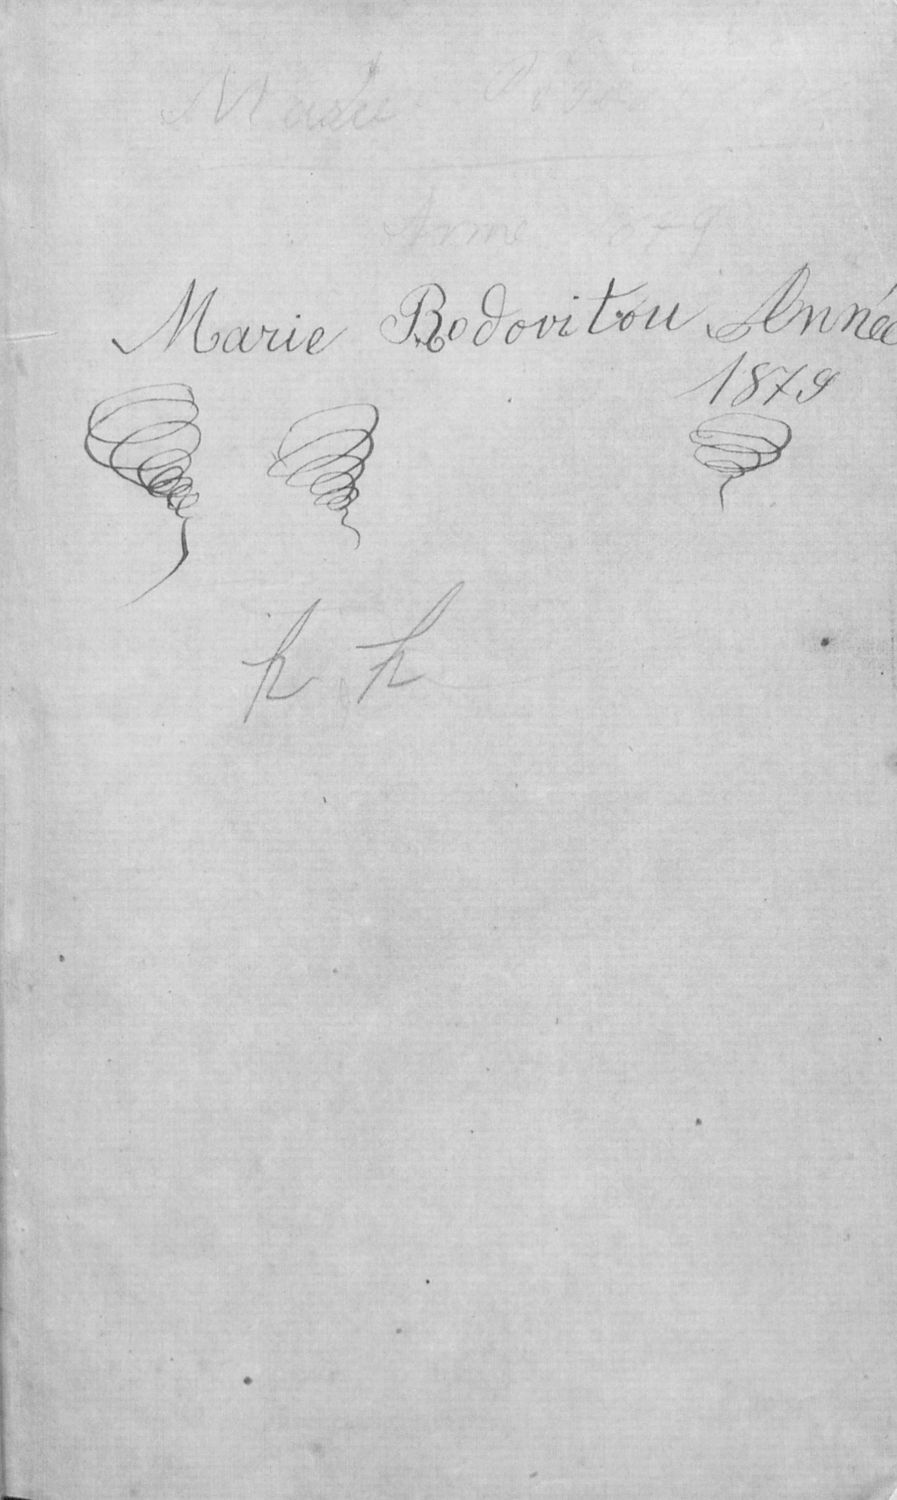 Marie
Année 1879
Marie Rodovitou Année
1879
h h